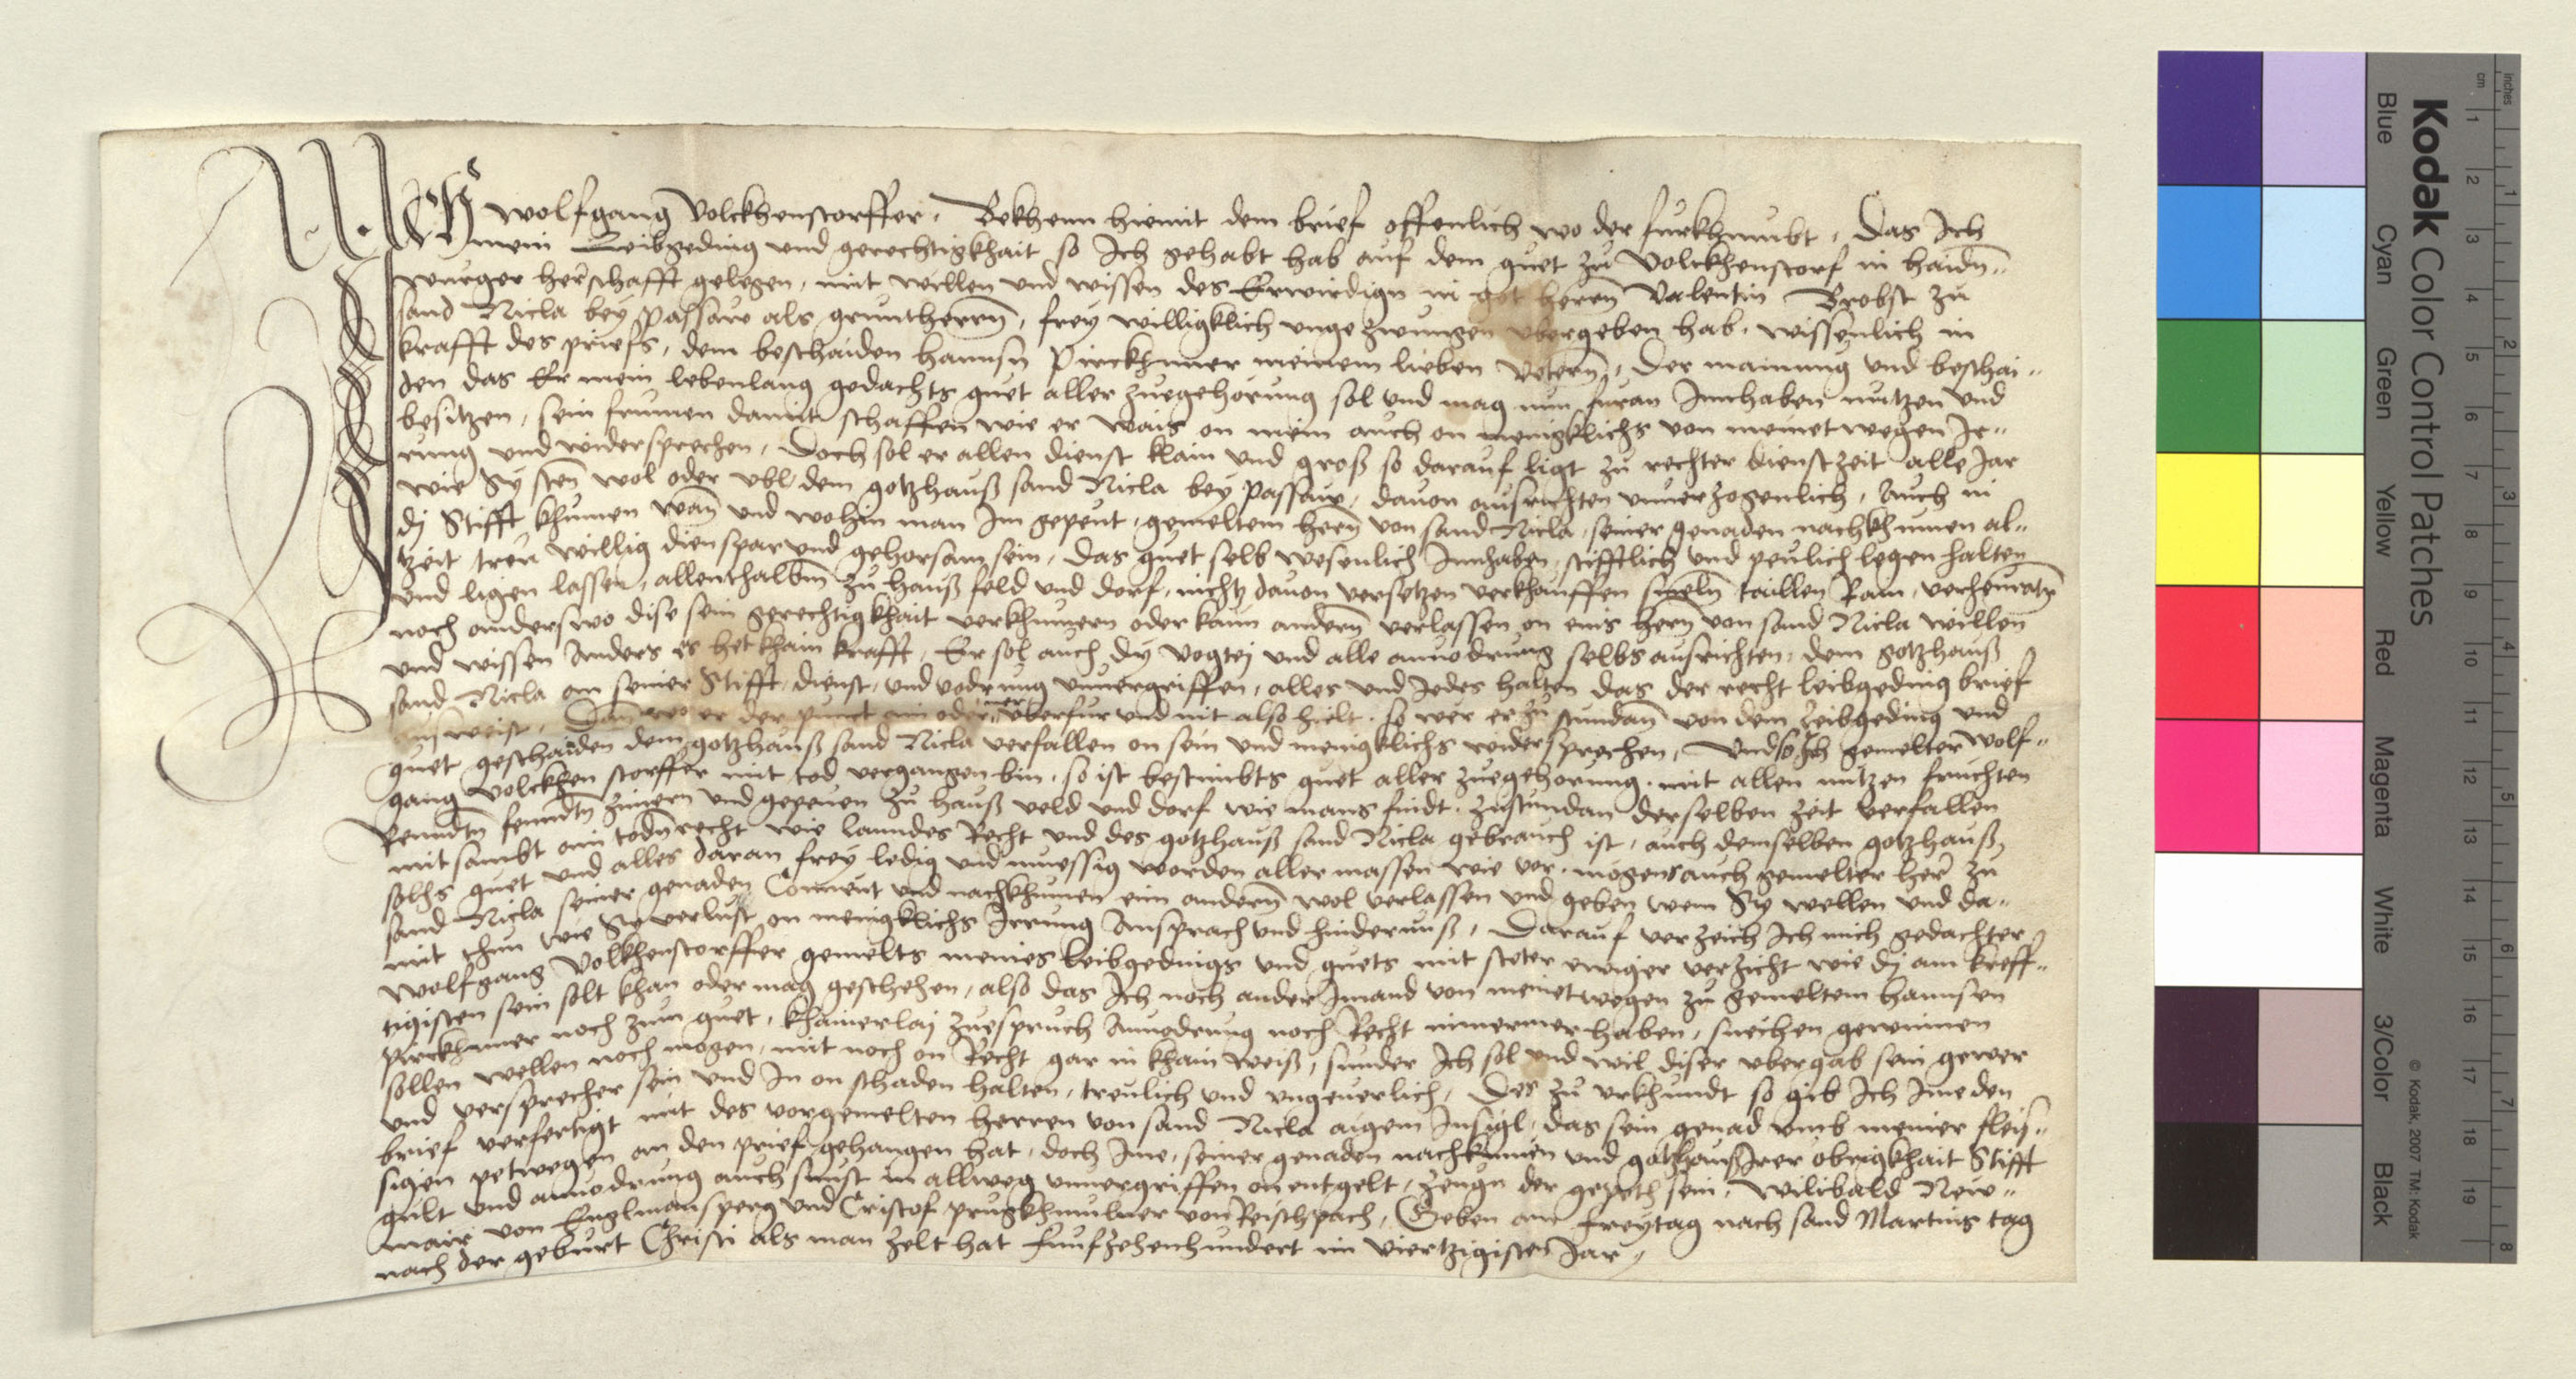 Ich wolfgang Volckhenstorffer. Bekhenn hiemit dem brief offenlich wo der furkhumbt. Das Ich
mein Leibgeding und gerechtigkhait so Ich gehabt hab auf dem guet zu Volckhenstorf in haidn=
wurger herschafft gelegen, mit willen und wissen des Erwirdign in got herrn Valentin Brobst zu
sand Nicla bey passaw als gruntherrn, frey willigklich ungezwungen ubergeben hab. wissenlich in
krafft des priefs, dem beschaiden hannsn Pirckhmer meinem lieben Vetern, Der mainung und beschai=
den das Er mein lebenlang gedachts guet aller zuegehorung sol und mag nun furan Innhaben nutzen und
besitzen, sein frumen damit schaffen wie er wais on mein auch on menigklichs von meinet wegen Ir=
rung und widersprechen, Doch sol er allen dienst klain und groß so darauf ligt zu rechter dienstzeit alle Jar
wie Sy sten wol oder ubl, dem gotzhauß sand Nicla bey passaw, davon ausrichten unverzogenlich, Auch in
dj Stifft khumen wan und wohin man Im gepeut, gemeltem hern von sand Nicla, seiner genaden nachkhumen al=
tzeit treu willig dienspar und gehorsam sein, das guet selb wesenlich Innhaben, stifftlich und peulich legen halten
und ligen lassen, allenthalbm zu hauß feld und dorf, nichtz davon versetzen verkhauffen taillen verheuratn
noch anderswo dise sein gerechtigkhait verkhumern oder kaim andern verlassen on eins hern von sand Nicla willen
und wissen Anders es het khain krafft, Er sol auch dy vogtej und alle anvodrung selbs ausrichten, dem gotzhauß
sand Nicla an seiner Stifft, dienst, und vodrung unvergriffen, alles und Jedes halten das der recht leibgeding brief
ausweist, Dan wo er der punct ain oder mer uberfur und nit also hielt. so wer er zu stundan von dem Leibgeding und
guet geschaiden dem gotzhauß sand Nicla verfallen on sein und menigklichs widersprechen, Und so Ich gemelter wolf=
gang Volckhenstorffer mit tod vergangen bin, so ist bestimbts guet aller zuegehorung. mit allen nutzen fruchten
zimern und gepeuen zu hauß veld und dorf wie mans findt. zustundan derselben zeit verfallen
mitsambt aim todnrecht wie lanndes Recht und des gotzhauß sand Nicla gebrauch ist, auch demselben gotzhauß
solchs guet und alles daran frey ledig und muessig worden aller massen wie vor. mogens auch gemelter her zu
sand Nicla seiner genaden Convent und nachkhumen eim andern wol verlassen und geben wem Sy wellen und da=
mit thun wie Sy verlust on menigklichs Irrung Ansprach und hindernuß, Darauf verzeich Ich mich gedachter
wolfgang Volkhenstorffer gemelts meines leibgedings und guets mit steter ewiger verzicht wie dj am kreff=
tigisten sein solt khan oder mag geschehen, also das Ich noch ander Jmand von meinet wegen zu gemeltem hannsen
pirckhmer noch zum guet, khainerlaj zuespruch Anvodrung noch Recht nimermer haben, suechen gewinnen
sollen wellen noch mogen, mit noch on Recht gar in khain weiß, sunder Ich sol und wil diser ubergab sein gewer
und versprecher sein und In on schaden halten, treulich und ungeverlich, Des zu urkhundt so gib Ich Ime den
brief verfertigt mit des vorgemelten herren von sand Nicla aigem Insigl, das sein genad umb meiner fleis=
sigen pet wegen an den prief gehangen hat, doch Ime, seiner genaden nachkumen und gotzhauß Irer obrigkhait Stifft
gult und anvodrung auch sunst in allweg unvergriffen on entgelt, Zeugn der gepeth sein, Wilibald New=
mair von Englmansperg und Cristof prugkhmulner von Reischpach, Geben am freytag nach sand Martins tag
nach der geburt Christi als man zelt hat funfzehenhundert im viertzigisten Jar,
Kodak Color Control Patches
Blue Cyan Green Yellow Red Magenta White 3/Color Black
© Kodak, 2007 TM: Kodak
inches 1 2 3 4 5 6 7 8
cm 1 2 3 4 5 6 7 8 9 10 11 12 13 14 15 16 17 18 19